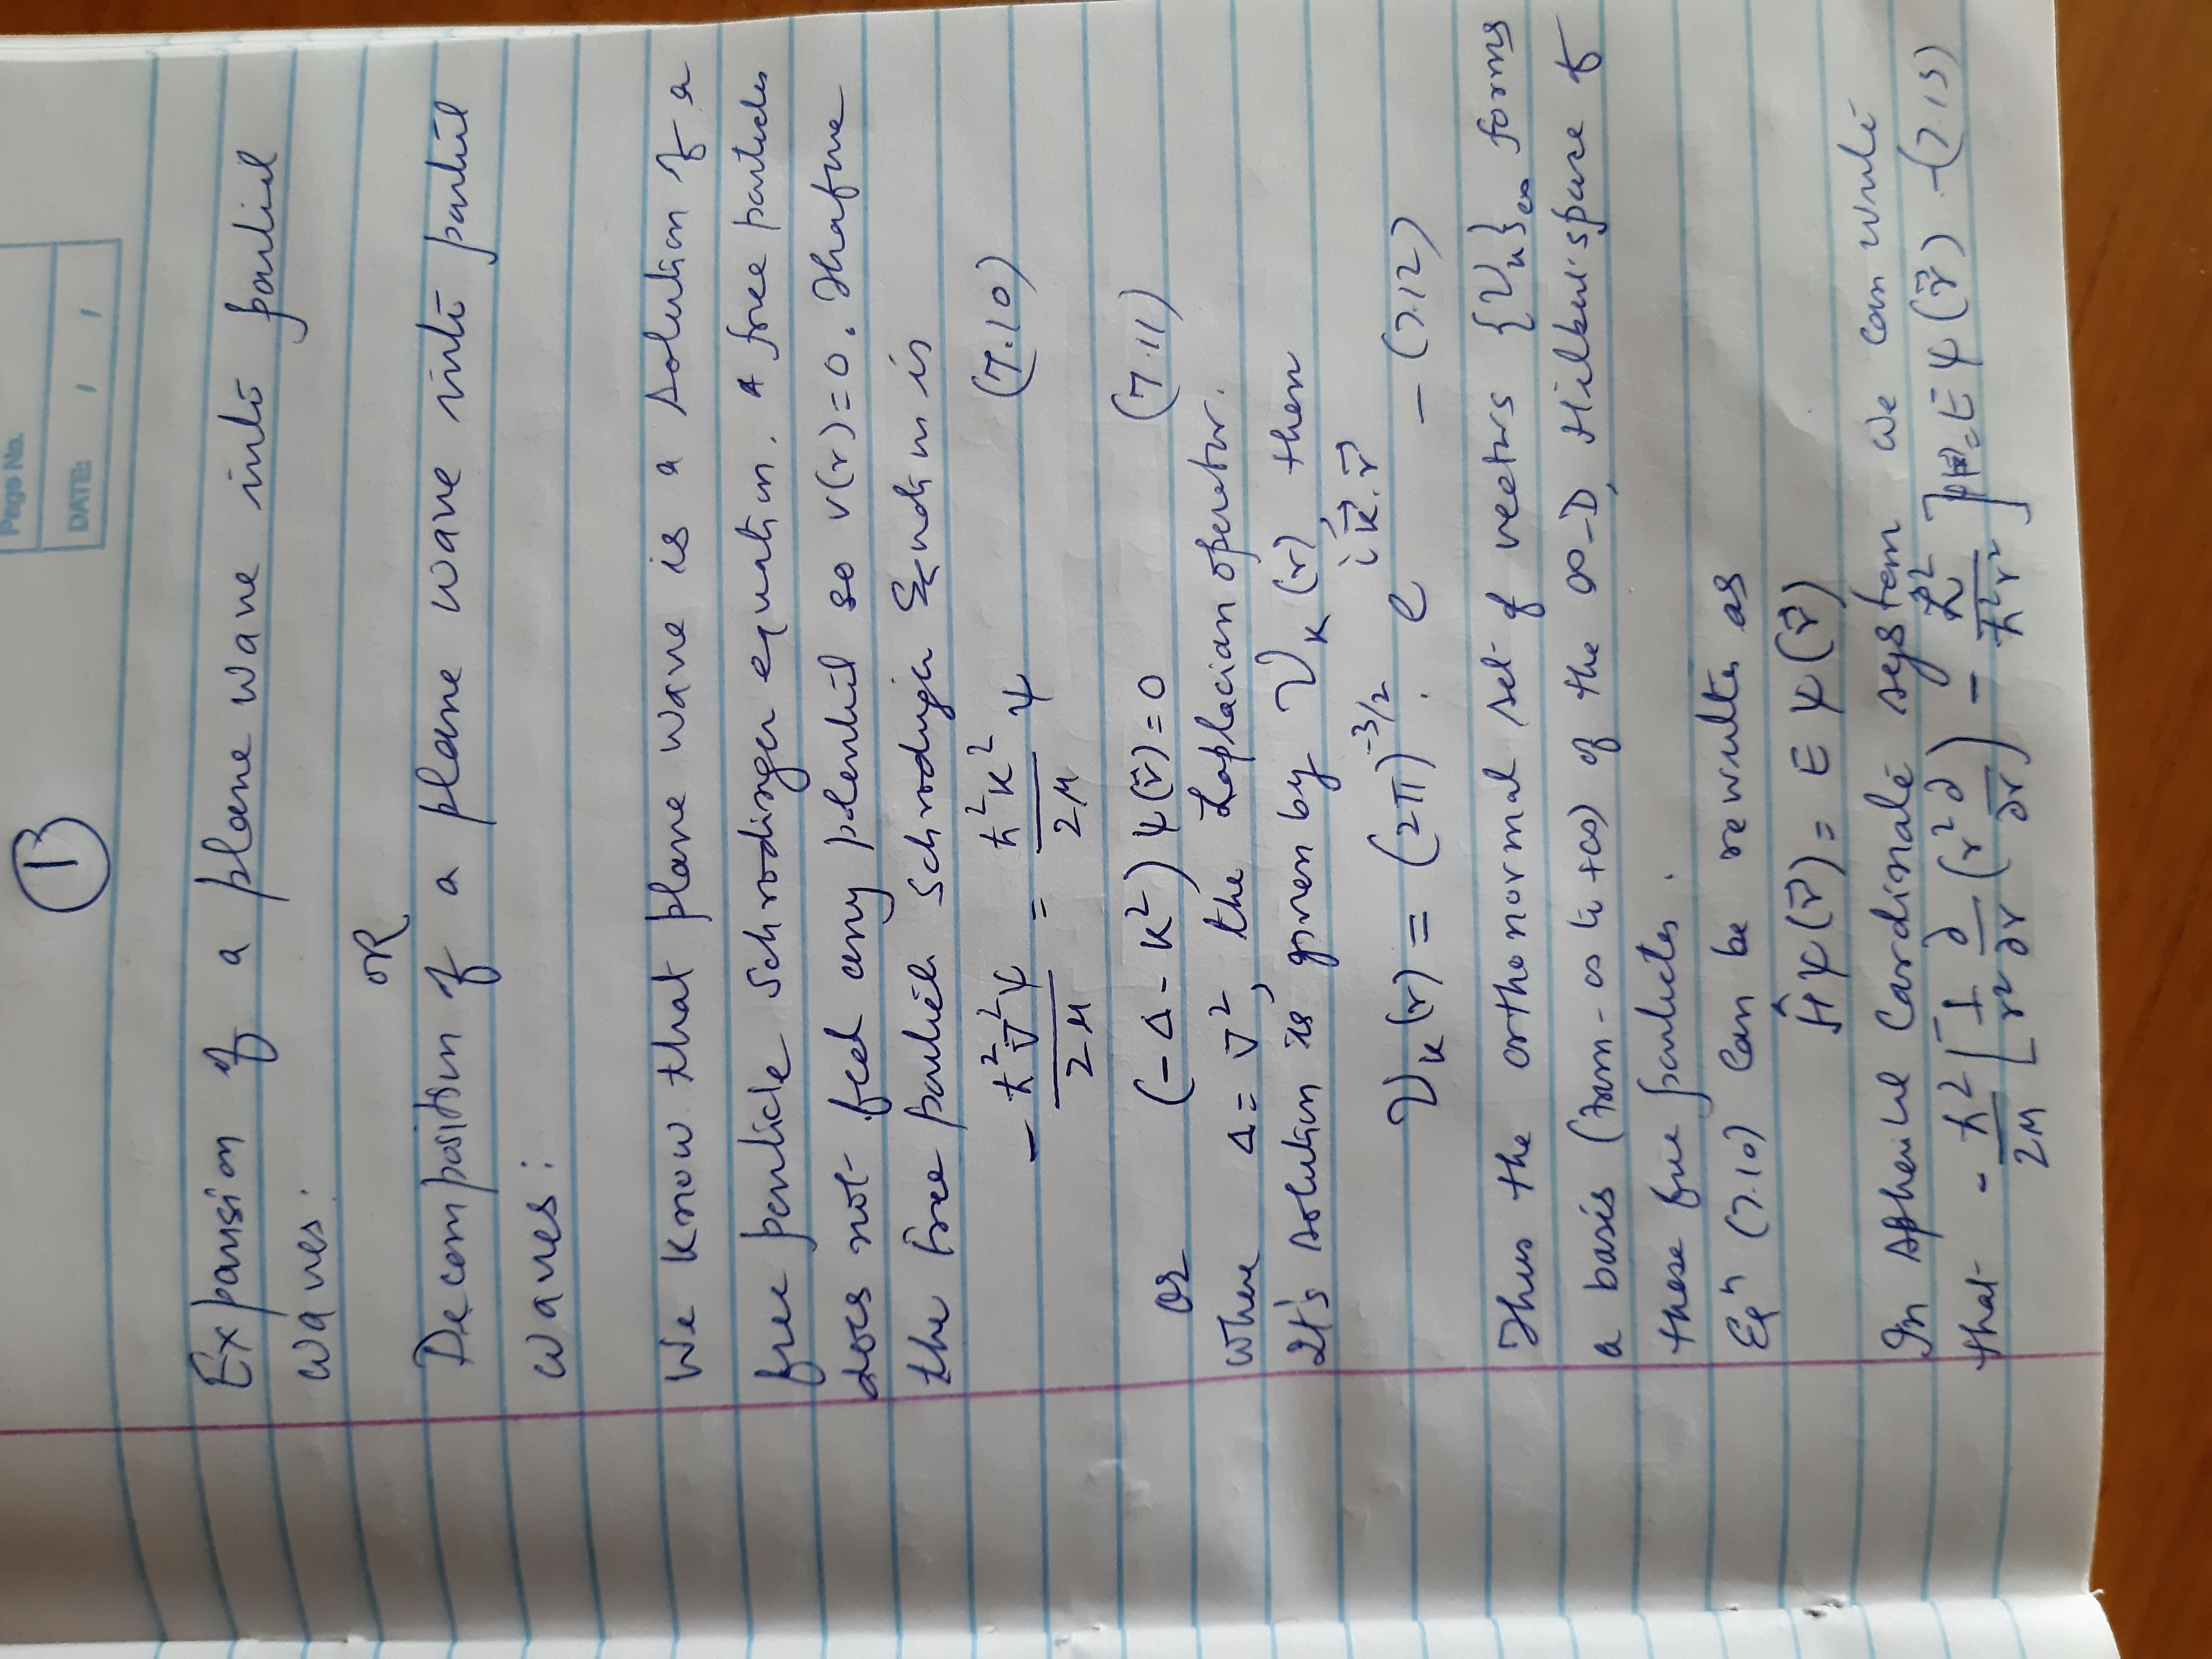 Page No.
DATE: / /
①
Expansion of a plane wave into partial
waves:
OR
Decomposition of a plane wave into partial
waves:
We know that plane wave is a solution of a
free particle Schrodinger equation. A free particles
does not feel any potential so v(r)=0. Therefore
the free particle Schrodinger Equation is
- ħ²∇²ψ/2μ = ħ²k²/2μ ψ (7.10)
or (-Δ-k²)ψ(r⃗)=0 (7.11)
where Δ=∇², the Laplacian operator.
It's solution is given by V_k(r) then
V_k(r) = (2π)^{-3/2} . e^{i k⃗.r⃗} - (7.12)
Thus the orthonormal set of vectors {V_k}_∞ forms
a basis (from -∞ to +∞) of the ∞-D, Hilbert space of
these free particles.
Eqⁿ (7.10) can be rewritten as
Ĥψ(r⃗) = Eψ(r⃗)
In spherical Cardinate system we can write
that - ħ²/2μ [1/r² ∂/∂r (r²∂/∂r) - L̂²/ħ²r²]ψ = Eψ(r⃗) -(7.13)